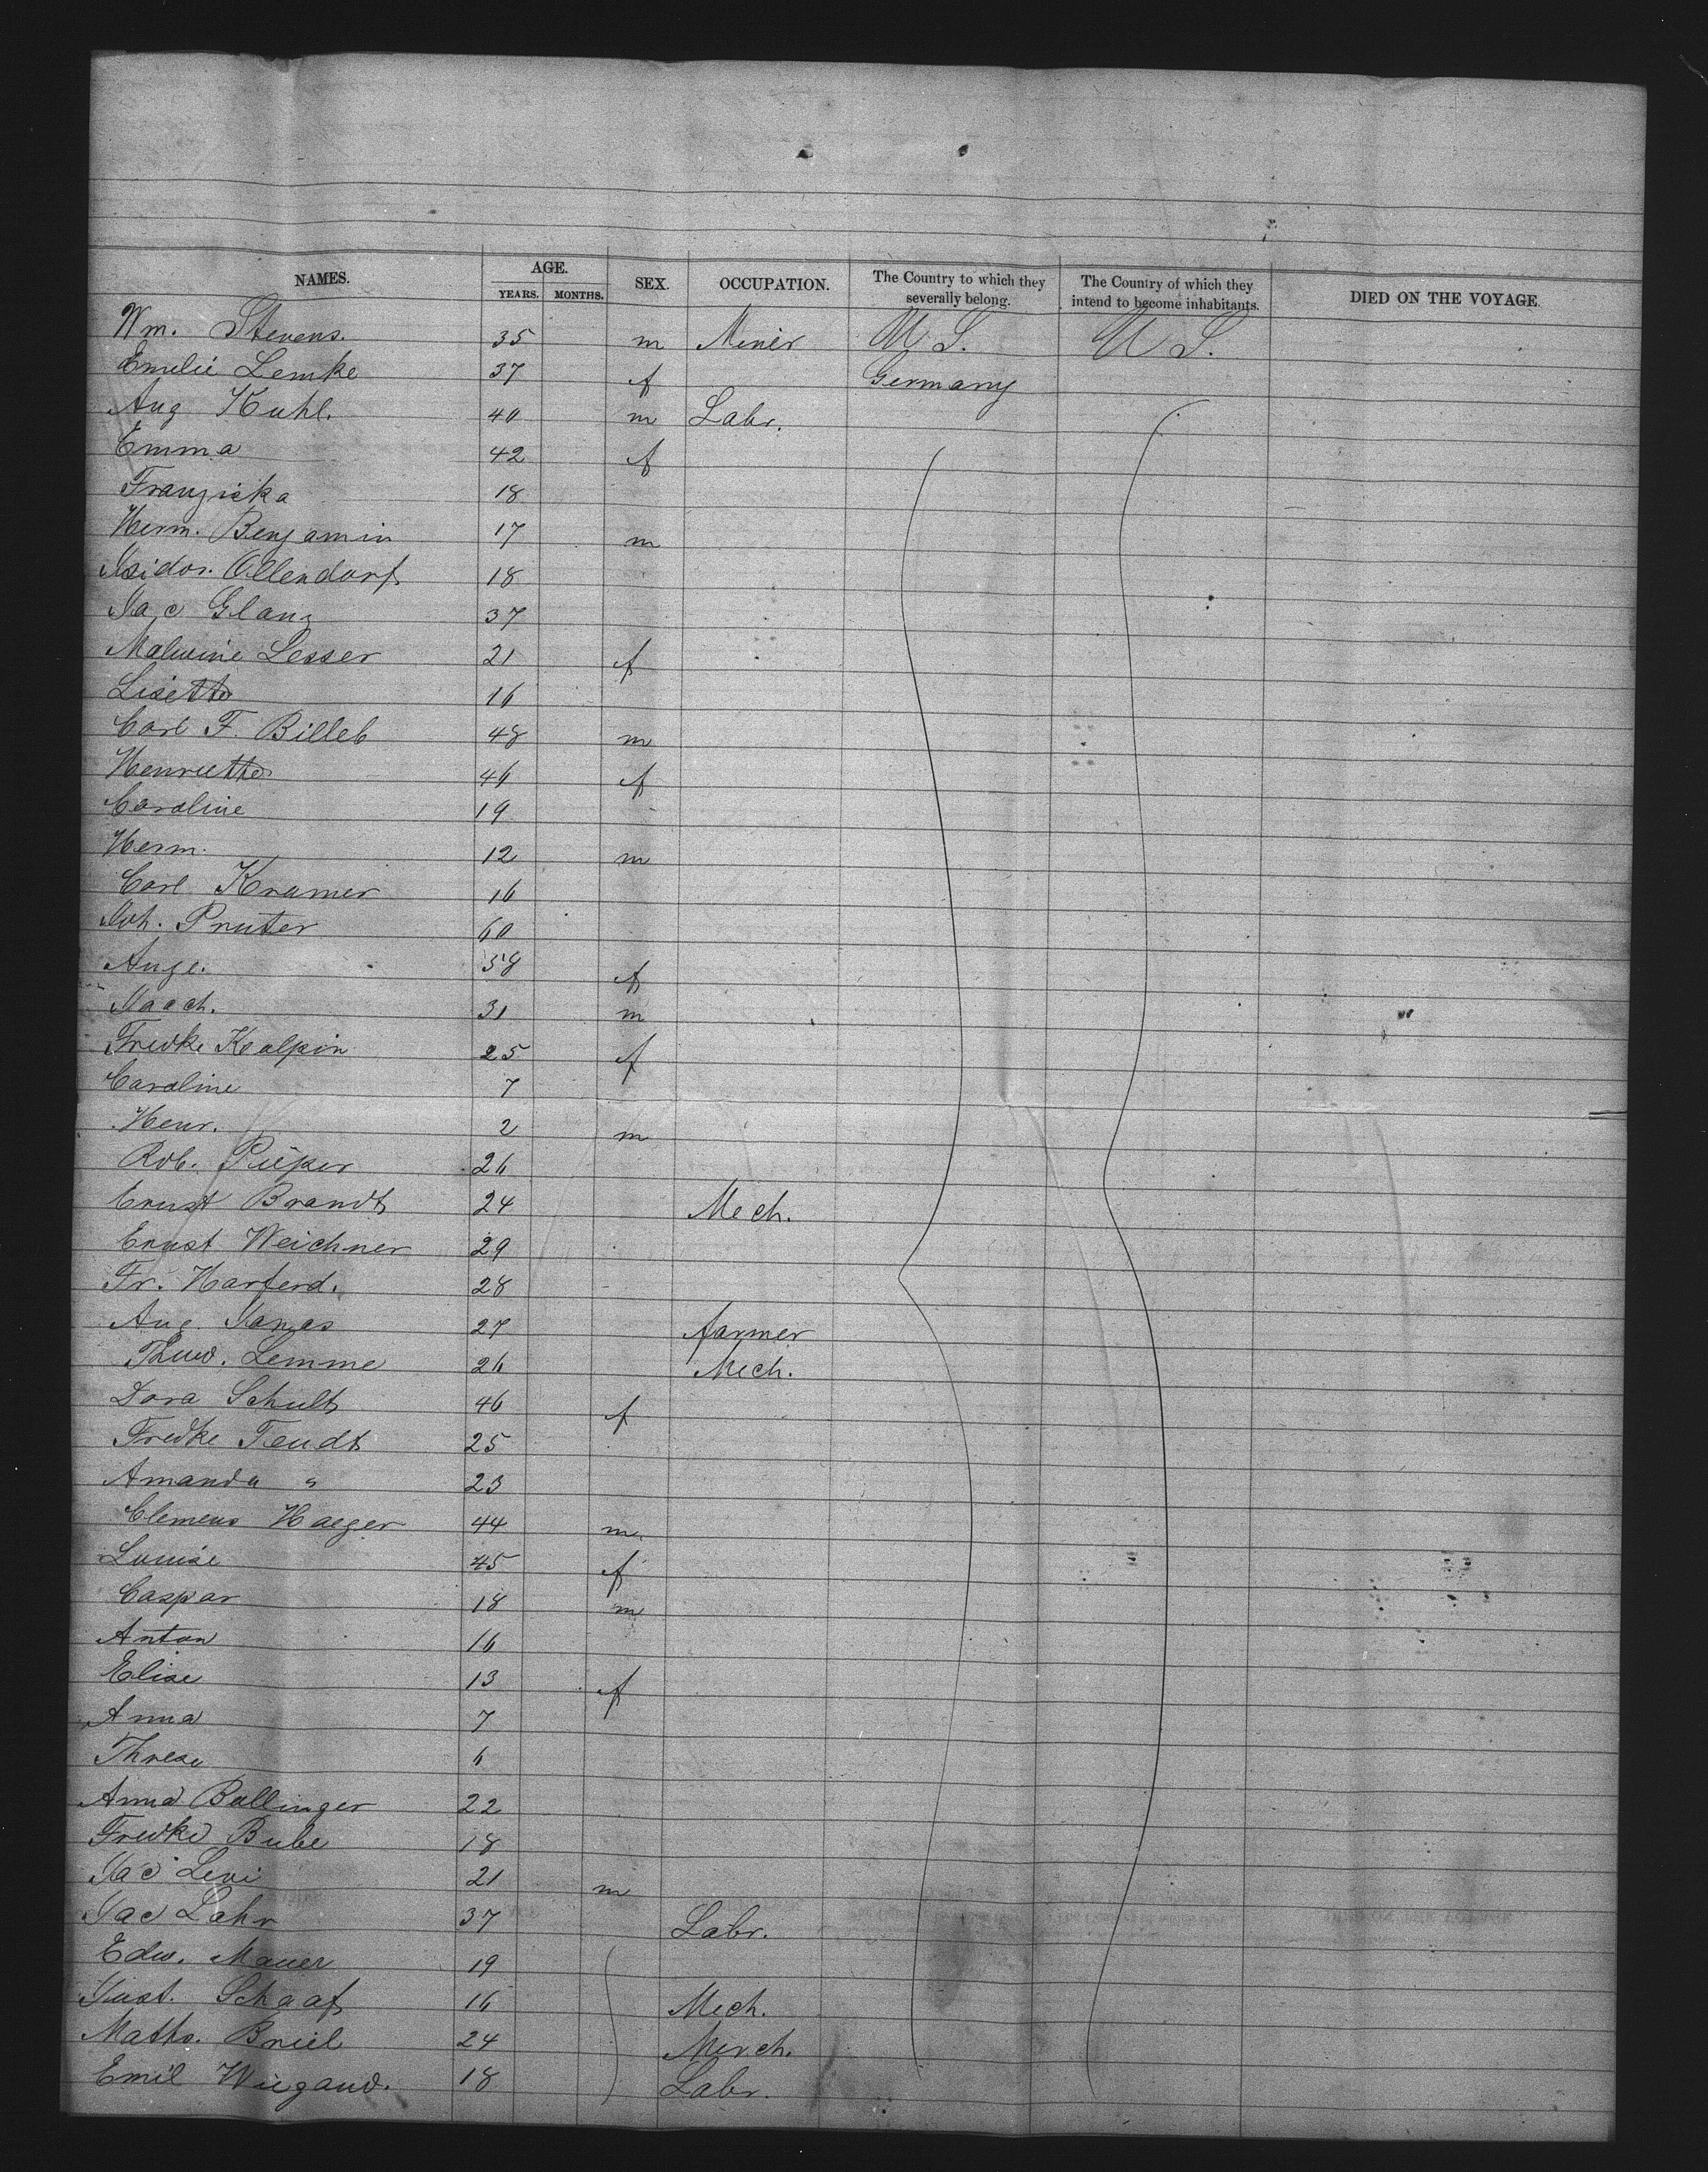 NAMES. AGE. SEX. OCCUPATION. The Country to which they severally belong. The Country of which they intend to become inhabitants. DIED ON THE VOYAGE.
YEARS. MONTHS.
Wm. Stevens. 35 m Miner U S. U S.
Emelie Lemke 37 f Germany
Aug Kuhl. 40 m Labr.
Emma 42 f
Franziska 18
Herm. Benjamin 17 m
Isidor. Ollendorf 18
Isac Glanz 37
Malwine Lesser 21 f
Lisette 16
Carl F. Billeb 48 m
Henriette 46 f
Caroline 19
Herm. 12 m
Carl Kramer 16
Joh. Pruter 60
58 f
31 m
Fredke Kalpin 25 f
Caroline 7
Henr. 2 m
Rob. Pieper 26
Ernst Brandt 24 Mech.
Ernst Weichner 29
Fr. Harferd. 28
Aug. 27 farmer
Theod. Lemme 26 Mech.
Dora Schult 46 f
Fredke Tendt 25
Amanda " 23
Clemens Haeger 44 m
Louise 45 f
Caspar 18 m
Anton 16
Elise 13 f
Anna 7
Threse 6
Anna Ballinger 22
Fredke Bube 18
Isac Levi 21 m
Jac Lahr 37 Labr.
Edw. Mauer 19
Gust. Schaaf 16 Mech.
Maths. Briel 24 Merch.
Emil Wiegand. 18 Labr.